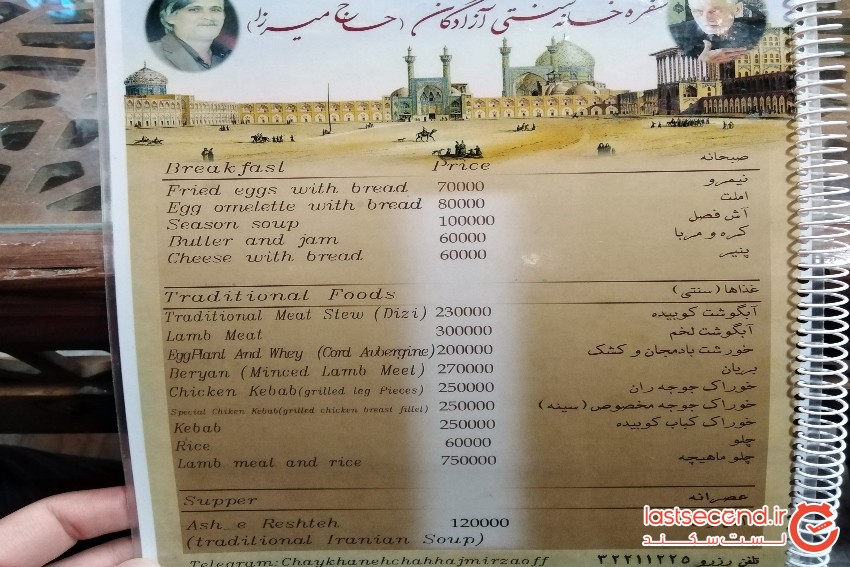 سفره خانه سنتی آزادگان (حاج میرزا)
Breakfasl Price صبحانه
Fried eggs with bread 70000 نیمرو
Egg omelette with bread 80000 املت
Season soup 100000 آش فصل
Butler and jam 60000 کره و مربا
Cheese with bread 60000 پنیر
Traditional Foods غذاها (سنتی)
Traditional Meat Stew (Dizi) 230000 آبگوشت کوبیده
Lamb Meat 300000 آبگوشت لخم
EggPlant And Whey (Cord Aubergine) 200000 خورشت بادمجان و کشک
Beryan (Minced Lamb Meet) 270000 بریان
Chicken Kebab(grilled leg Pieces) 250000 خوراک جوجه ران
Special Chiken Kebab(grilled chicken breast fillel) 250000 خوراک جوجه مخصوص (سینه)
Kebab 250000 خوراک کباب کوبیده
Rice 60000 چلو
Lamb meal and rice 750000 چلو ماهیچه
Supper عصرانه
Ash_e Reshteh 120000
(traditional Iranian Soup)
Telegram:Chaykhanehchahhajmirzaoff تلفن رزرو ۳۲۲۱۱۲۲۵
lastsecond.ir
لست سکند